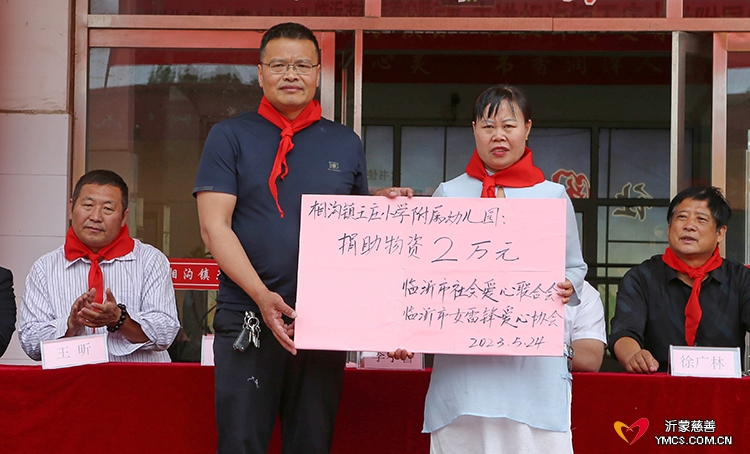 相沟镇王庄小学附属幼儿园：
捐助物资2万元
临沂市社会爱心联合会
临沂市女雷锋爱心协会
2023.5.24
王昕
徐广林
相沟镇
沂蒙慈善
YMCS.COM.CN